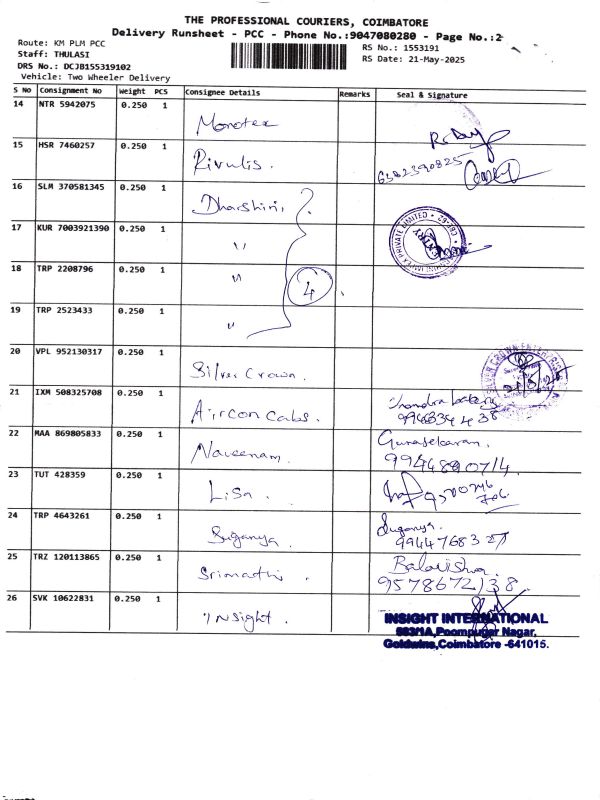 THE PROFESSIONAL COURIERS, COIMBATORE
Delivery Runsheet - PCC - Phone No.:9047080280 - Page No.:2
Route: KM PLM PCC
Staff: THULASI
DRS No.: DCJB155319102
Vehicle: Two Wheeler Delivery
RS No.: 1553191
RS Date: 21-May-2025
S No Consignment No Weight PCS Consignee Details Remarks Seal & Signature
14 NTR 5942075 0.250 1 Monotex
15 HSR 7460257 0.250 1 Rivulis. 6382390825
16 SLM 370581345 0.250 1 Dharshini
17 KUR 7003921390 0.250 1 "
18 TRP 2208796 0.250 1 " 4
19 TRP 2523433 0.250 1 "
20 VPL 952130317 0.250 1 Silver Crown.
21 IXM 508325708 0.250 1 Aircon Cabs.
22 MAA 869805833 0.250 1 Naveenam. Gunasekaran.
9944890714
23 TUT 428359 0.250 1 Lisa.
24 TRP 4643261 0.250 1 Suganya. Suganya.
25 TRZ 120113865 0.250 1 Srimathi.
9578672138
26 SVK 10622831 0.250 1 Insight.
INSIGHT INTERNATIONAL
683/1A,Poompugar Nagar,
Goldwins,Coimbatore -641015.